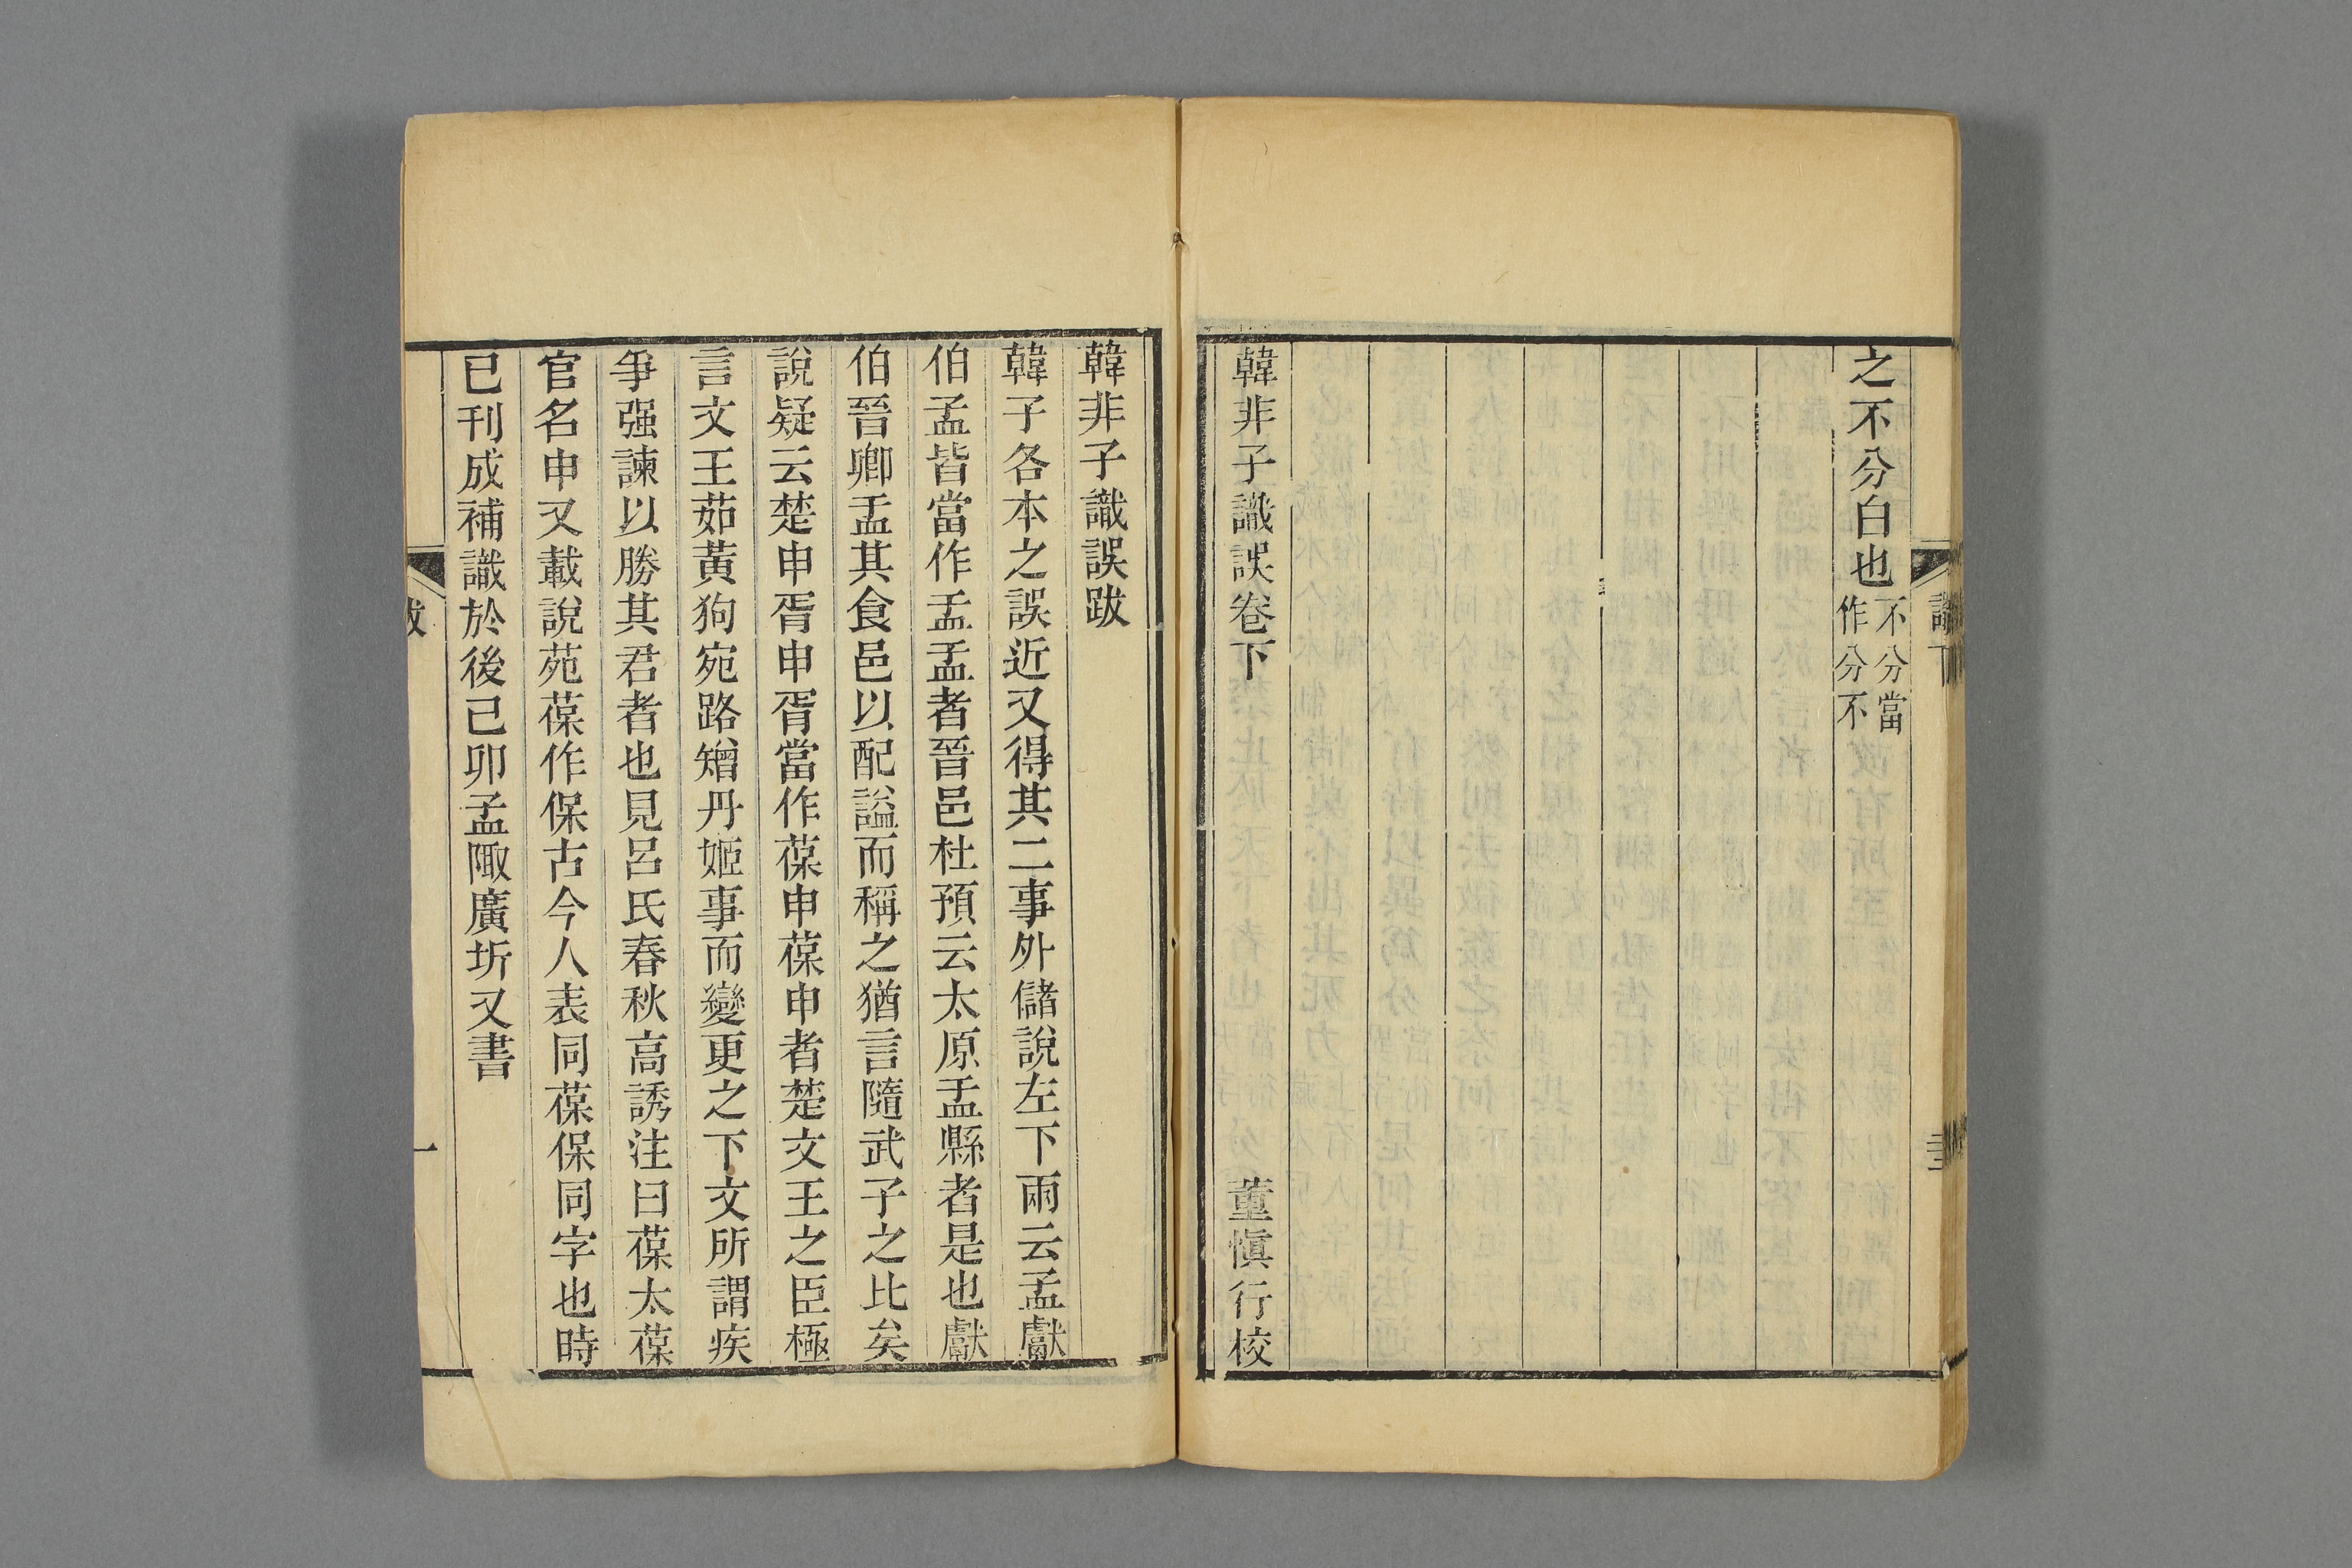 之不分白也不分當
作分不
韓非子識誤卷下 董慎行校
韓非子識誤跋
韓子各本之誤近又得其二事外儲說左下兩云孟獻
伯孟皆當作盂盂者晉邑杜預云太原盂縣者是也獻
伯晉卿盂其食邑以配謚而稱之猶言隨武子之比矣
說疑云楚申胥申胥當作葆申葆申者楚文王之臣極
言文王茹黃狗宛路矰丹姬事而變更之下文所謂疾
爭强諫以勝其君者也見呂氏春秋高誘注曰葆太葆
官名申又載說苑葆作保古今人表同葆保同字也時
已刊成補識於後己卯孟陬廣圻又書
一